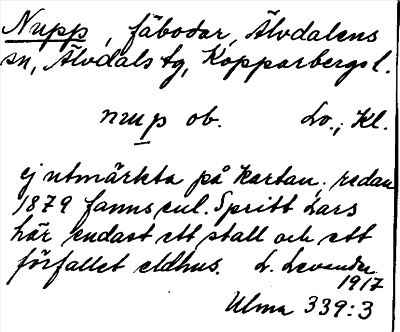 Nupp, fäbodar, Älvdalens
sn, Älvdals tg, Kopparbergs l.
nup ob. Lo., Kl.
ej utmärkta på kartan; redan
1879 fanns enl. Spritt Lars
här endast ett stall och ett
förfallet eldhus. L. Levander
1917
Ulma 339:3